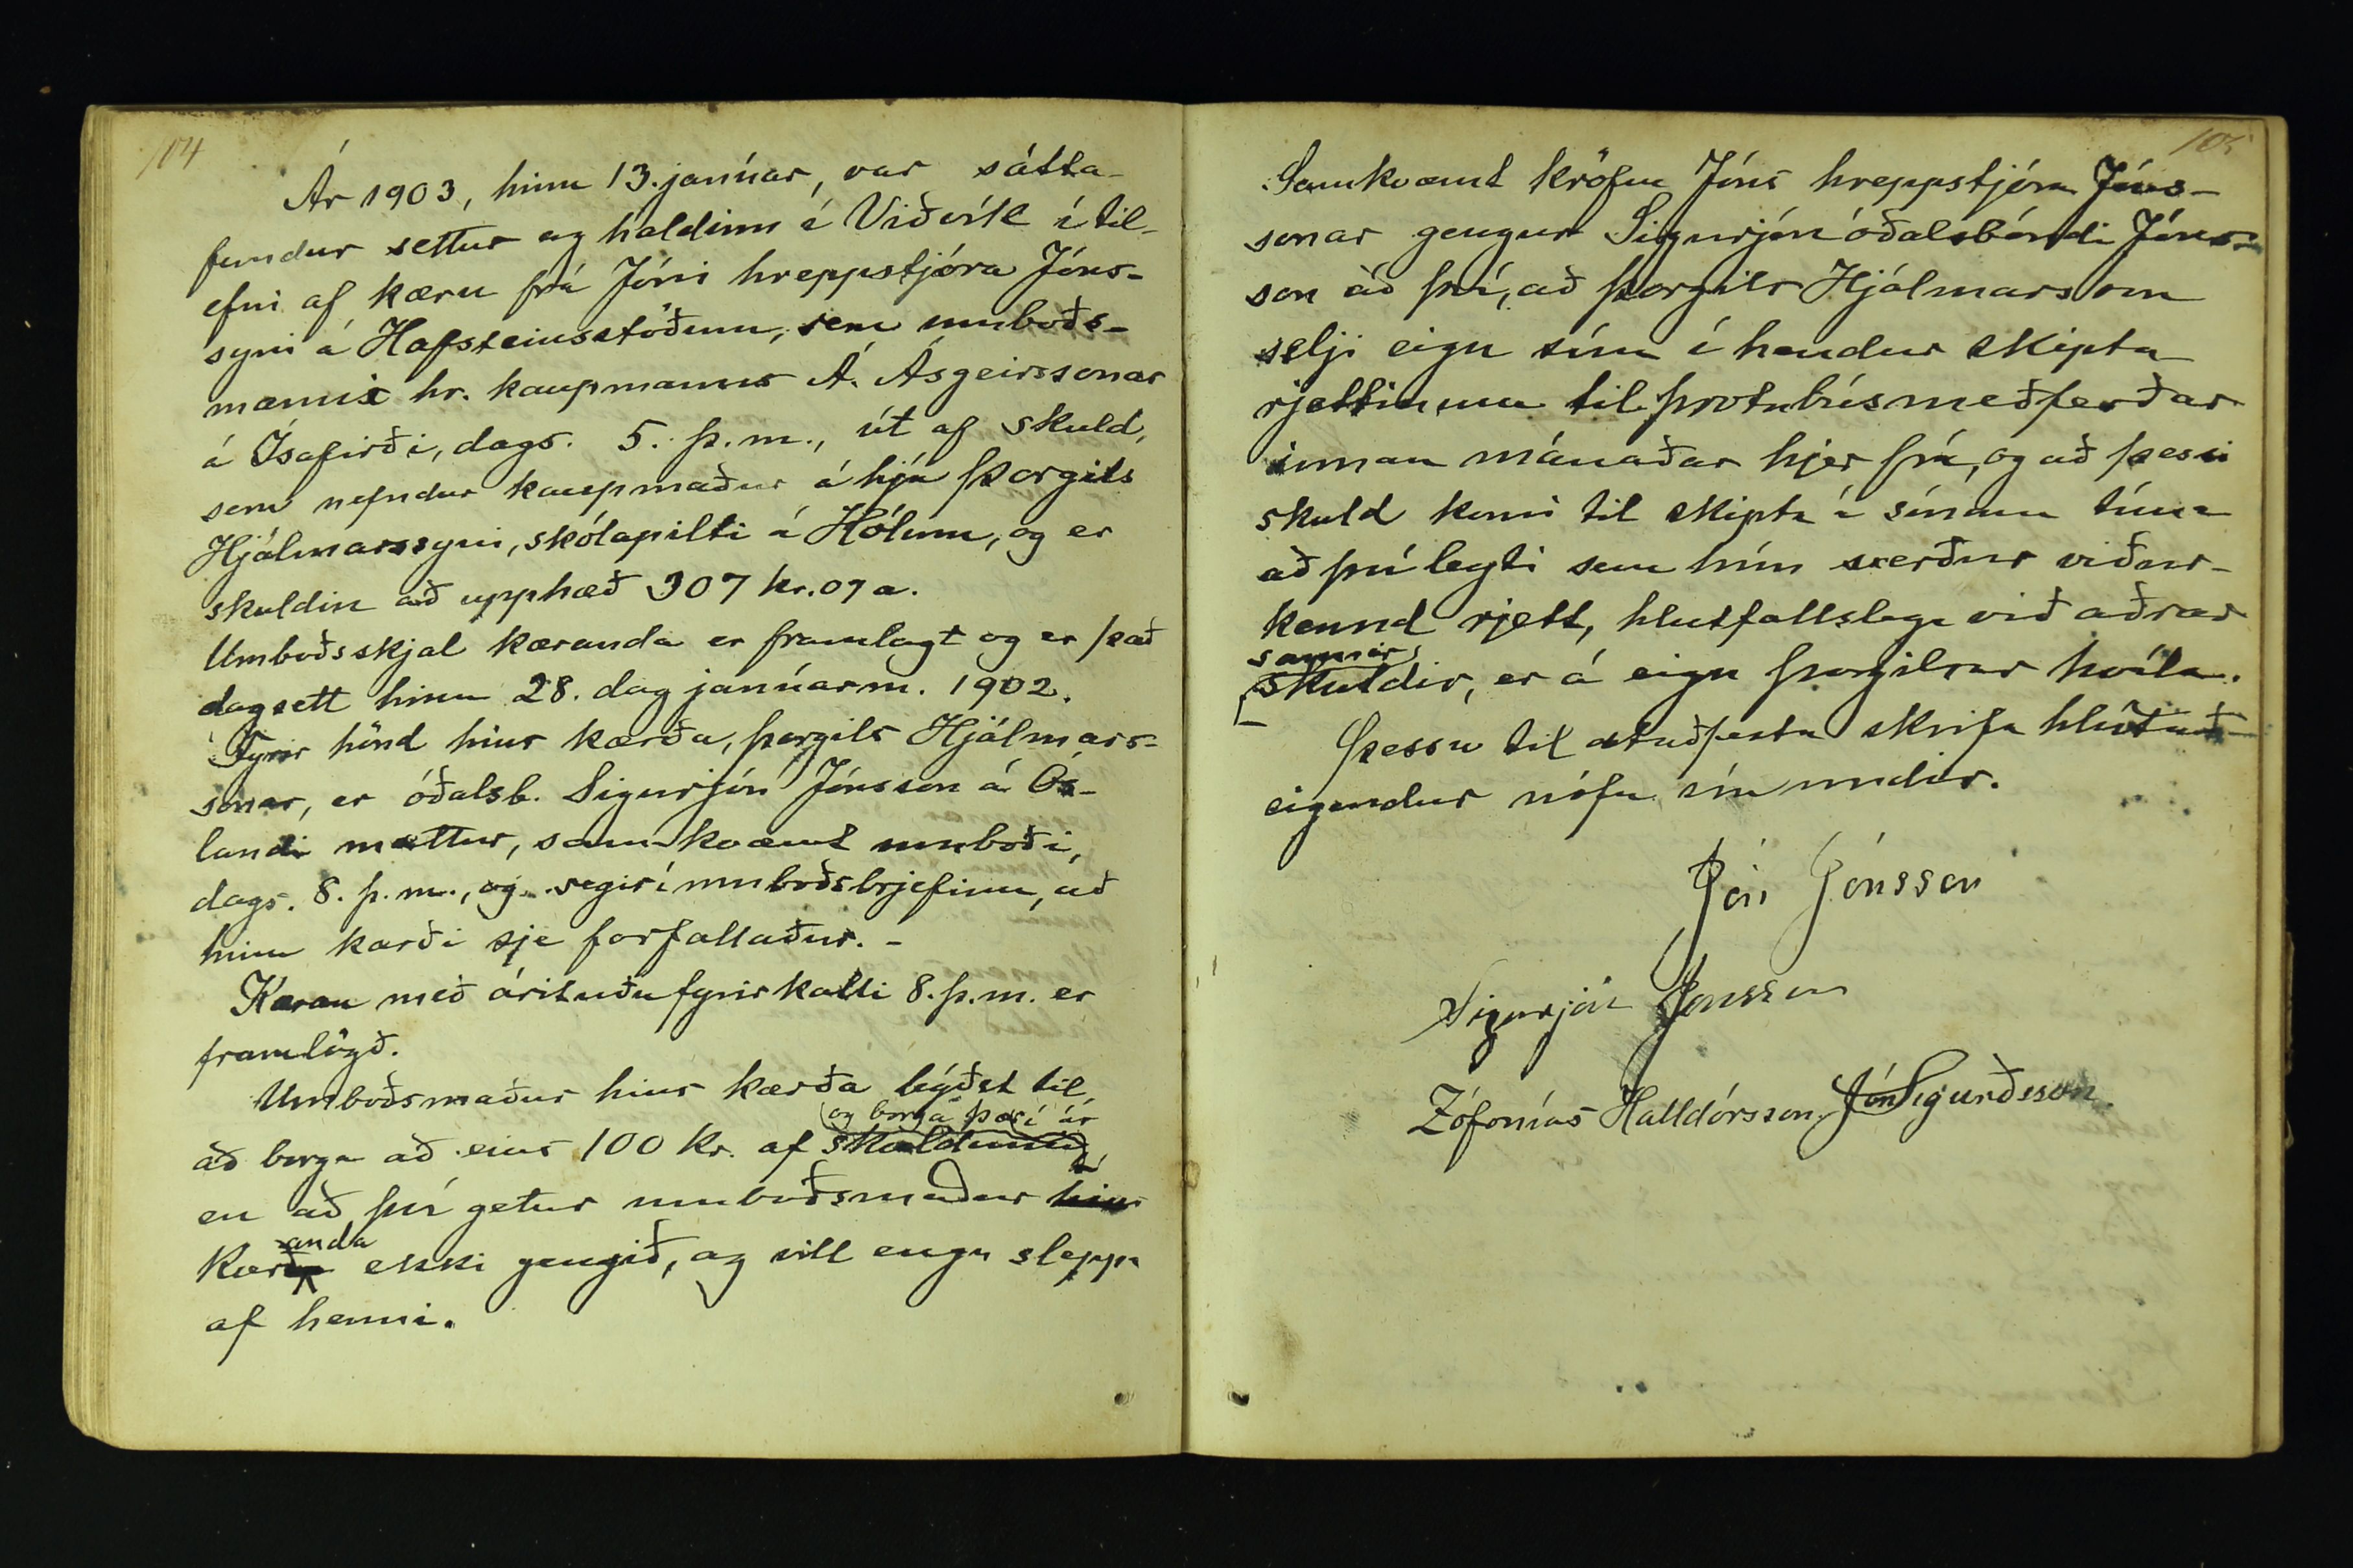 104
Ár 1903, hinn 13. janúar, var sátta-
fundur settur og haldinn í Viðvík í til-
efni af kæru frá Jóni hreppstjóra Jóns-
syni á Hafsteinsstöðum, sem umboðs-
manni hr. kaupmanns Á. Ásgeirssonar
á Ísafirði, dags. 5. þ.m., út af skuld,
sem nefndur kaupmaður á hjá Þorgils
Hjálmarssyni, skólapilti á Hólum, og er
skuldin að upphæð 307 kr. 07 a.
Umboðsskjal kæranda er framlagt og er það
dagsett hinn 28. dag janúarm. 1902.
Fyrir hönd hins kærða, Þorgils Hjálmars-
sonar, er óðalsb. Sigurjón Jónsson á Ós-
landi mættur, samkvæmt umboði,
dags. 8. þ.m., og segir í umboðsbrjefinu, að
hinn kærði sje forfallaður. -
Kæran með árituðu fyrirkalli 8. þ.m. er
framlögð.
Umboðsmaður hins kærða býðst til,
og borga þær í ár
að borga að eins 100 kr. af skuldinni,
en að því getur umboðsmaður hins
anda
kærða ekki gengið, og vill engu sleppa
af henni.
105
Samkvæmt kröfu Jóns hreppstjóra Jóns-
sonar gengur Sigurjón óðalsbóndi Jóns-
son að því, að Þorgils Hjálmarsson
selji eigu sína í hendur skipta
rjettinum til þrotabúsmeðferðar
innan mánaðar hjer frá, og að þessi
skuld komi til skipta á sínum tíma
að því leyti sem hún verður viður-
kennd rjett, hlutfallslega við aðrar
sannar
skuldir, er á eigu Þorgilsar hvíla.
Þessu til staðfestu skrifa hlutað-
eigendur nöfn sín undir.
Jón Jónsson
Sigurjón Jónsson
Zófonías Halldórsson. Jón Sigurðsson.